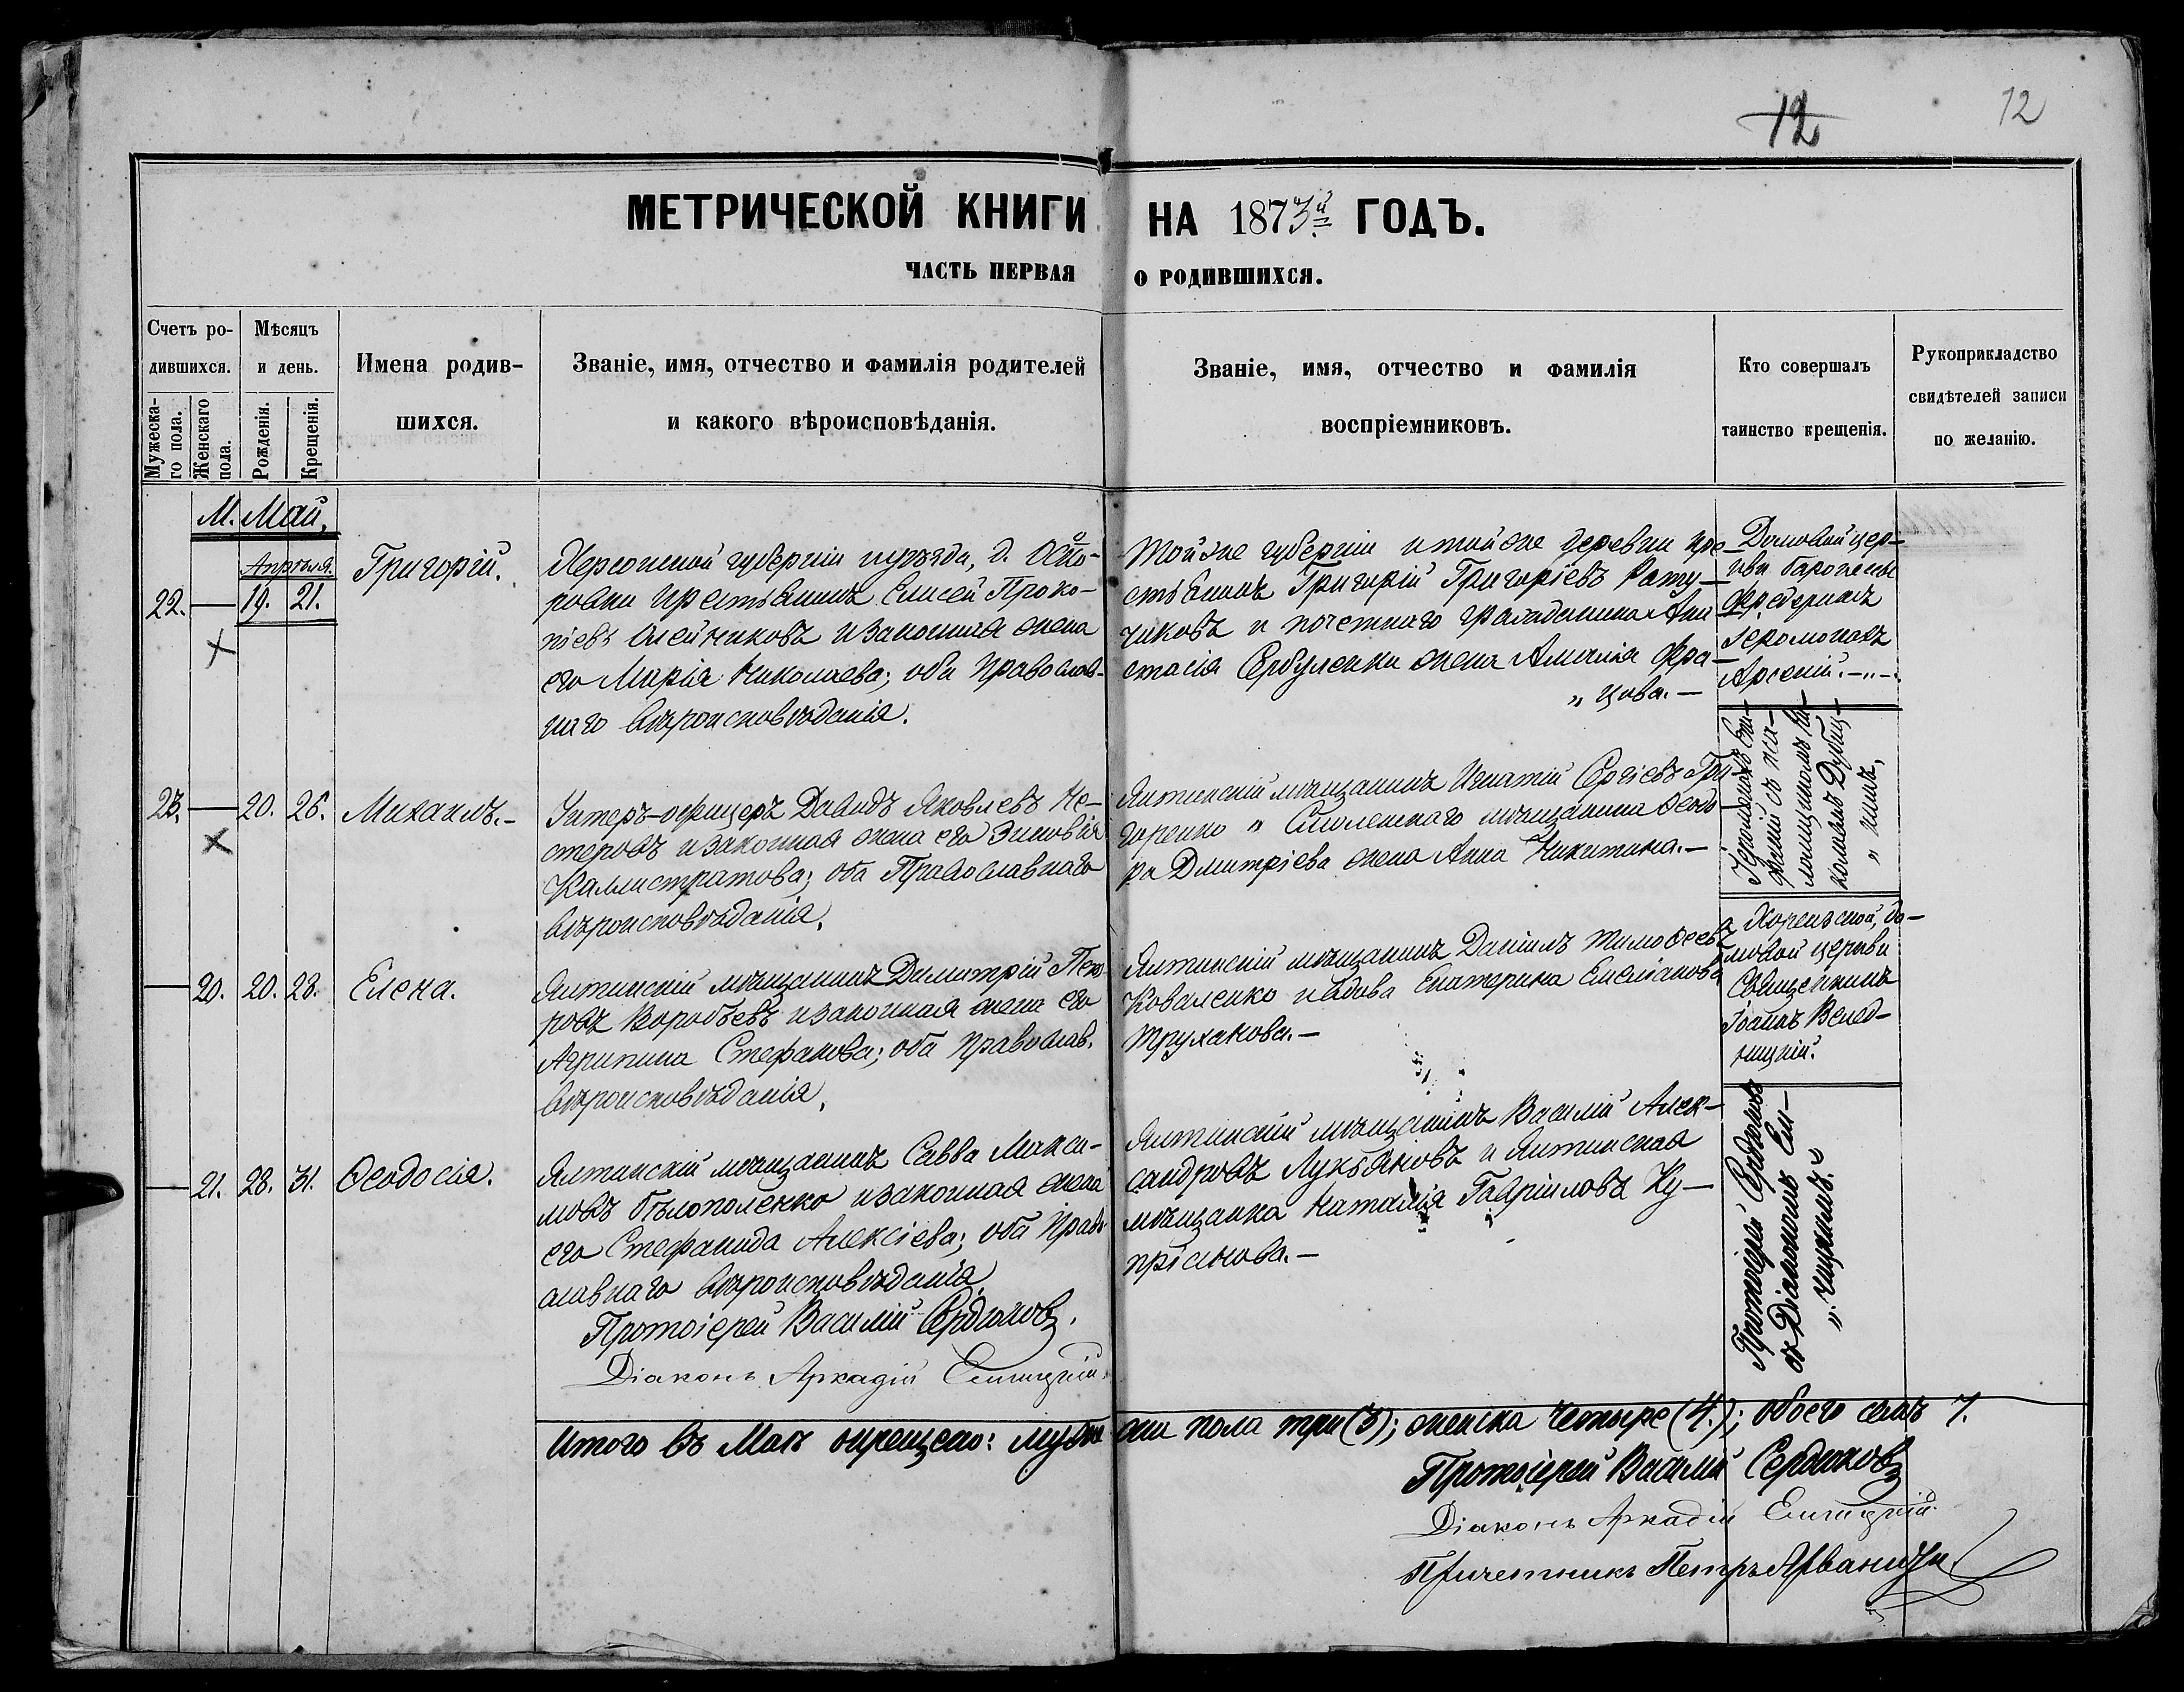 12
12
МЕТРИЧЕСКОЙ КНИГИ НА 1873й ГОДЪ.
ЧАСТЬ ПЕРВАЯ О РОДИВШИХСЯ.
Счетъ ро-
дившихся.
Мужеска-
го пола.
Женскаго
пола.
Мѣсяцъ
и день.
Рожденія.
Крещенія.
Имена родив-
шихся.
Званіе, имя, отчество и фамилія родителей
и какого вѣроисповѣданія.
Званіе, имя, отчество и фамилія
воспріемниковъ.
Кто совершалъ
таинство крещенія.
Рукоприкладство
свидѣтелей записи
по желанію.
М. Май,
Апрѣля.
22. — 19. 21. Григорій.
Херсонской губерніи и уѣзда, д.
ровки крестьянинъ Елисей Проко-
піевъ Олейниковъ и законная жена
его Марія Николаева; оба православ-
наго вѣроисповѣданія.
Той же губерніи и той же деревни кре-
стьянинъ Григорій Григоріевъ Рату-
чиковъ и почетнаго гражданина Ана
стасія Сербуленки жена Амалія Фра-
„ цова. —
Домовой цер-
кви баронессы
Фредериксъ
Іеромонахъ
Арсеній. — „ —
23. — 20. 26. Михаилъ. —
Унтеръ-офицеръ Давидъ Яковлевъ Не-
стеровъ и законная жена его Зиновія
Каллистратова; оба Православнаго
вѣроисповѣданія.
Ялтинскій мѣщанинъ Игнатій Сергіевъ Гри-
горенко и Смоленскаго мѣщанина Ѳеодо
ра Дмитріева жена Анна Никитина. —
Іеромонахъ
ломщикомъ Ни-
колаемъ Дубиц-
„ кимъ,
— 20. 20. 28. Елена.
Ялтинскій мѣщанинъ Димитрій Пет-
ровъ Воробьевъ и законная жена его
Агрипина Стефанова; оба православ.
вѣроисповѣданія.
Ялтинскій мѣщанинъ Даніилъ Тимоѳеевъ
Коваленко и вдова Екатерина Емеліанова
Труханова. —
Хореизской, до-
мовой церкви
Священникъ
Іоаннъ Венед-
ницкій.
— 21. 28. 31. Ѳеодосія.
Ялтинскій мѣщанинъ Савва Макси-
мовъ Бѣлополенко и законная жена
его Стефанида Алексіева; оба право
славнаго вѣроисповѣданія
Ялтинскій мѣщанинъ Василій Алек-
сандровъ Лукьяновъ и Ялтинская
мѣщанка Наталія Гавріилова Ку-
пріянова. —
Протоіерей Сердюковъ
съ Діакономъ Ели-
„ чицкимъ. „
Протоіерей Василій Сердюковъ.
Діаконъ Аркадій
Итого въ Маѣ окрещено: мужескаго пола три (3); женска четыре (4.); обоего семь 7.
Протоіерей Василій Сердюковъ
Діаконъ Аркадій
Причетникъ Петръ Арваниди